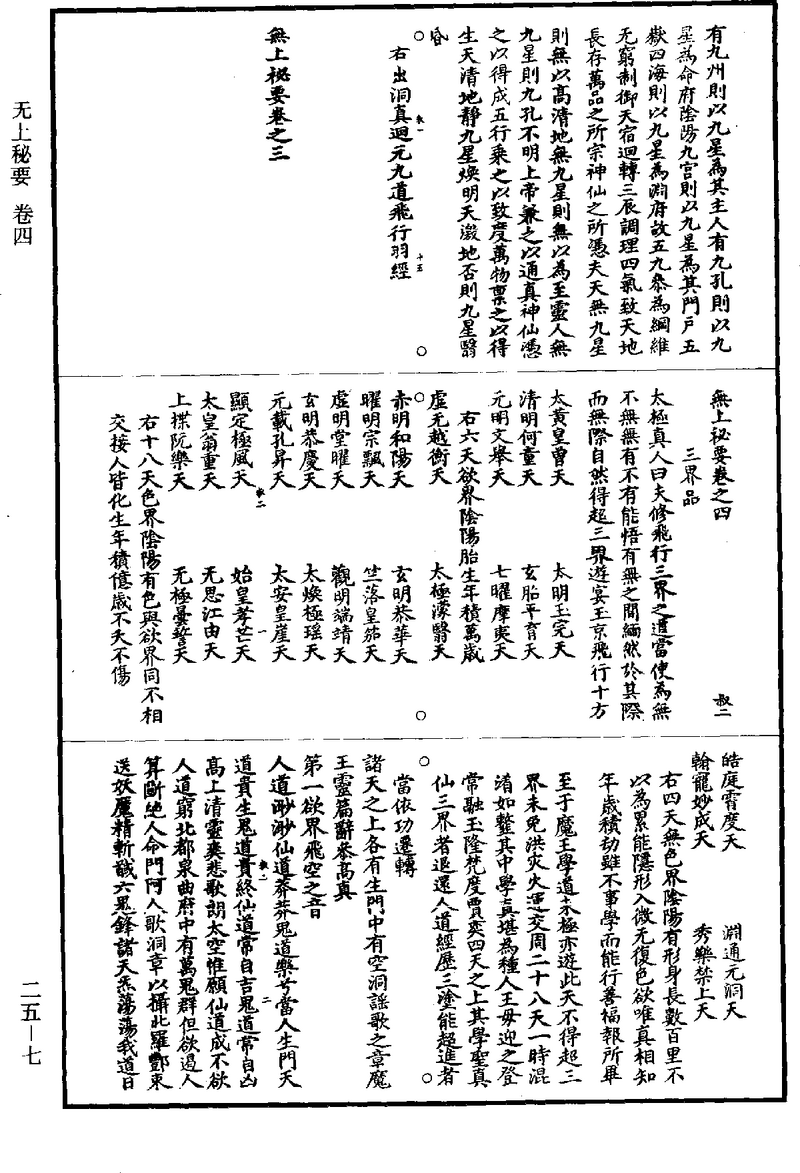 无上秘要 卷四
二五—七
有九州則以九星為其主人有九孔則以九
星為命府陰陽九宮則以九星為其門戶五
嶽四海則以九星為淵府故五九叅為綱維
无窮制御天宿迴轉三辰調理四氣致天地
長存萬品之所宗神仙之所憑夫天無九星
則無以高清地無九星則無以為至靈人無
九星則九孔不明上帝兼之以通真神仙憑
之以得成五行乘之以致度萬物稟之以得
生天清地靜九星煥明天激地否則九星翳
昏
右出洞真迴元九道飛行羽經
叔一
十五
無上祕要卷之三
無上祕要卷之四
叔二
三界品
太極真人曰夫修飛行三界之道當使為無
不無無有不有能悟有無之間緬然於其際
而無際自然得超三界遊宴玉京飛行十方
太黃皇曾天 太明玉完天
清明何童天 玄胎平育天
元明文舉天 七曜摩夷天
右六天欲界陰陽胎生年積萬歲
虛无越衡天 太極濛翳天
赤明和陽天 玄明恭華天
曜明宗飄天 竺落皇笳天
虛明堂曜天 觀明端靖天
玄明恭慶天 太煥極瑶天
元載孔昇天 太安皇崖天
叔二
一
顯定極風天 始皇孝芒天
太皇翁重天 无思江由天
上揲阮樂天 无極曇誓天
右十八天色界陰陽有色與欲界同不相
交接人皆化生年積億歲不夭不傷
皓庭霄度天 淵通元洞天
翰寵妙成天 秀樂禁上天
右四天無色界陰陽有形身長數百里不
以為累能隱形入微无復色欲唯真相知
年歲積劫雖不事學而能行善福報所畢
至于魔王學道未極亦遊此天不得超三
界未免洪灾大運交周二十八天一時混
淆如鏊其中學真堪為種人王母迎之登
常融玉隆梵度賈奕四天之上其學聖真
仙三界者退還人道經歷三塗能超進者
當依功遷轉
諸天之上各有生門中有空洞謠歌之章魔
王靈篇辭叅高真
第一欲界飛空之音
人道渺渺仙道莽莽鬼道樂兮當人生門天
道貴生鬼道貴終仙道常自吉鬼道常自凶
叔二
二
高上清靈爽悲歌朗太空惟願仙道成不欲
人道窮北都泉曲府中有萬鬼群但欲遏人
算斷絕人命門阿人歌洞章以攝北羅酆束
送妖魔精斬馘六鬼鋒諸天炁蕩蕩我道日